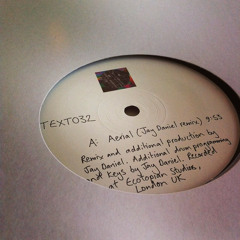 TEXT032
A: Aerial (Jay Daniel remix) 9:53
Remix and additional production by
Jay Daniel. Additional drum programming
and keys by Jay Daniel. Recorded
at Ecotopian Studios,
London UK